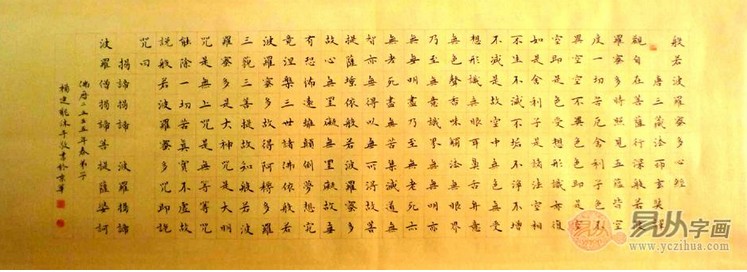 般若波羅蜜多心經
唐三藏法師玄奘譯
觀自在菩薩行深般若波
羅蜜多時照見五蘊皆空
度一切苦厄舍利子色不
異空空不異色色即是空
空即是色受想行識亦復
如是舍利子是諸法空相
不生不滅不垢不淨不增
不減是故空中無色無受
想行識無眼耳鼻舌身意
無色聲香味觸法無眼界
乃至無意識界無無明亦
無無明盡乃至無老死亦
無老死盡無苦集滅道無
智亦無得以無所得故菩
提薩埵依般若波羅蜜多
故心無罣礙無罣礙故無
有恐怖遠離顛倒夢想究
竟涅槃三世諸佛依般若
波羅蜜多故得阿耨多羅
三藐三菩提故知般若波
羅蜜多是大神咒是大明
咒是無上咒是無等等咒
能除一切苦真實不虛故
說般若波羅蜜多咒即說
咒曰
揭諦揭諦 波羅揭諦
波羅僧揭諦菩提薩婆訶
佛曆二五五五年春弟子
楊建沐手敬書於京華
易从字画
www.yczihua.com